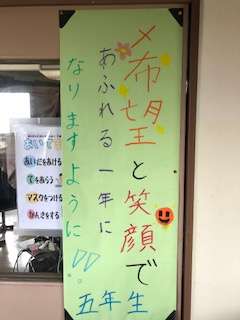 希望と笑顔で
あふれる一年に
なりますように
五年生
あいて
あいだをあける
てをあらう
マスクをつける
かんきをする